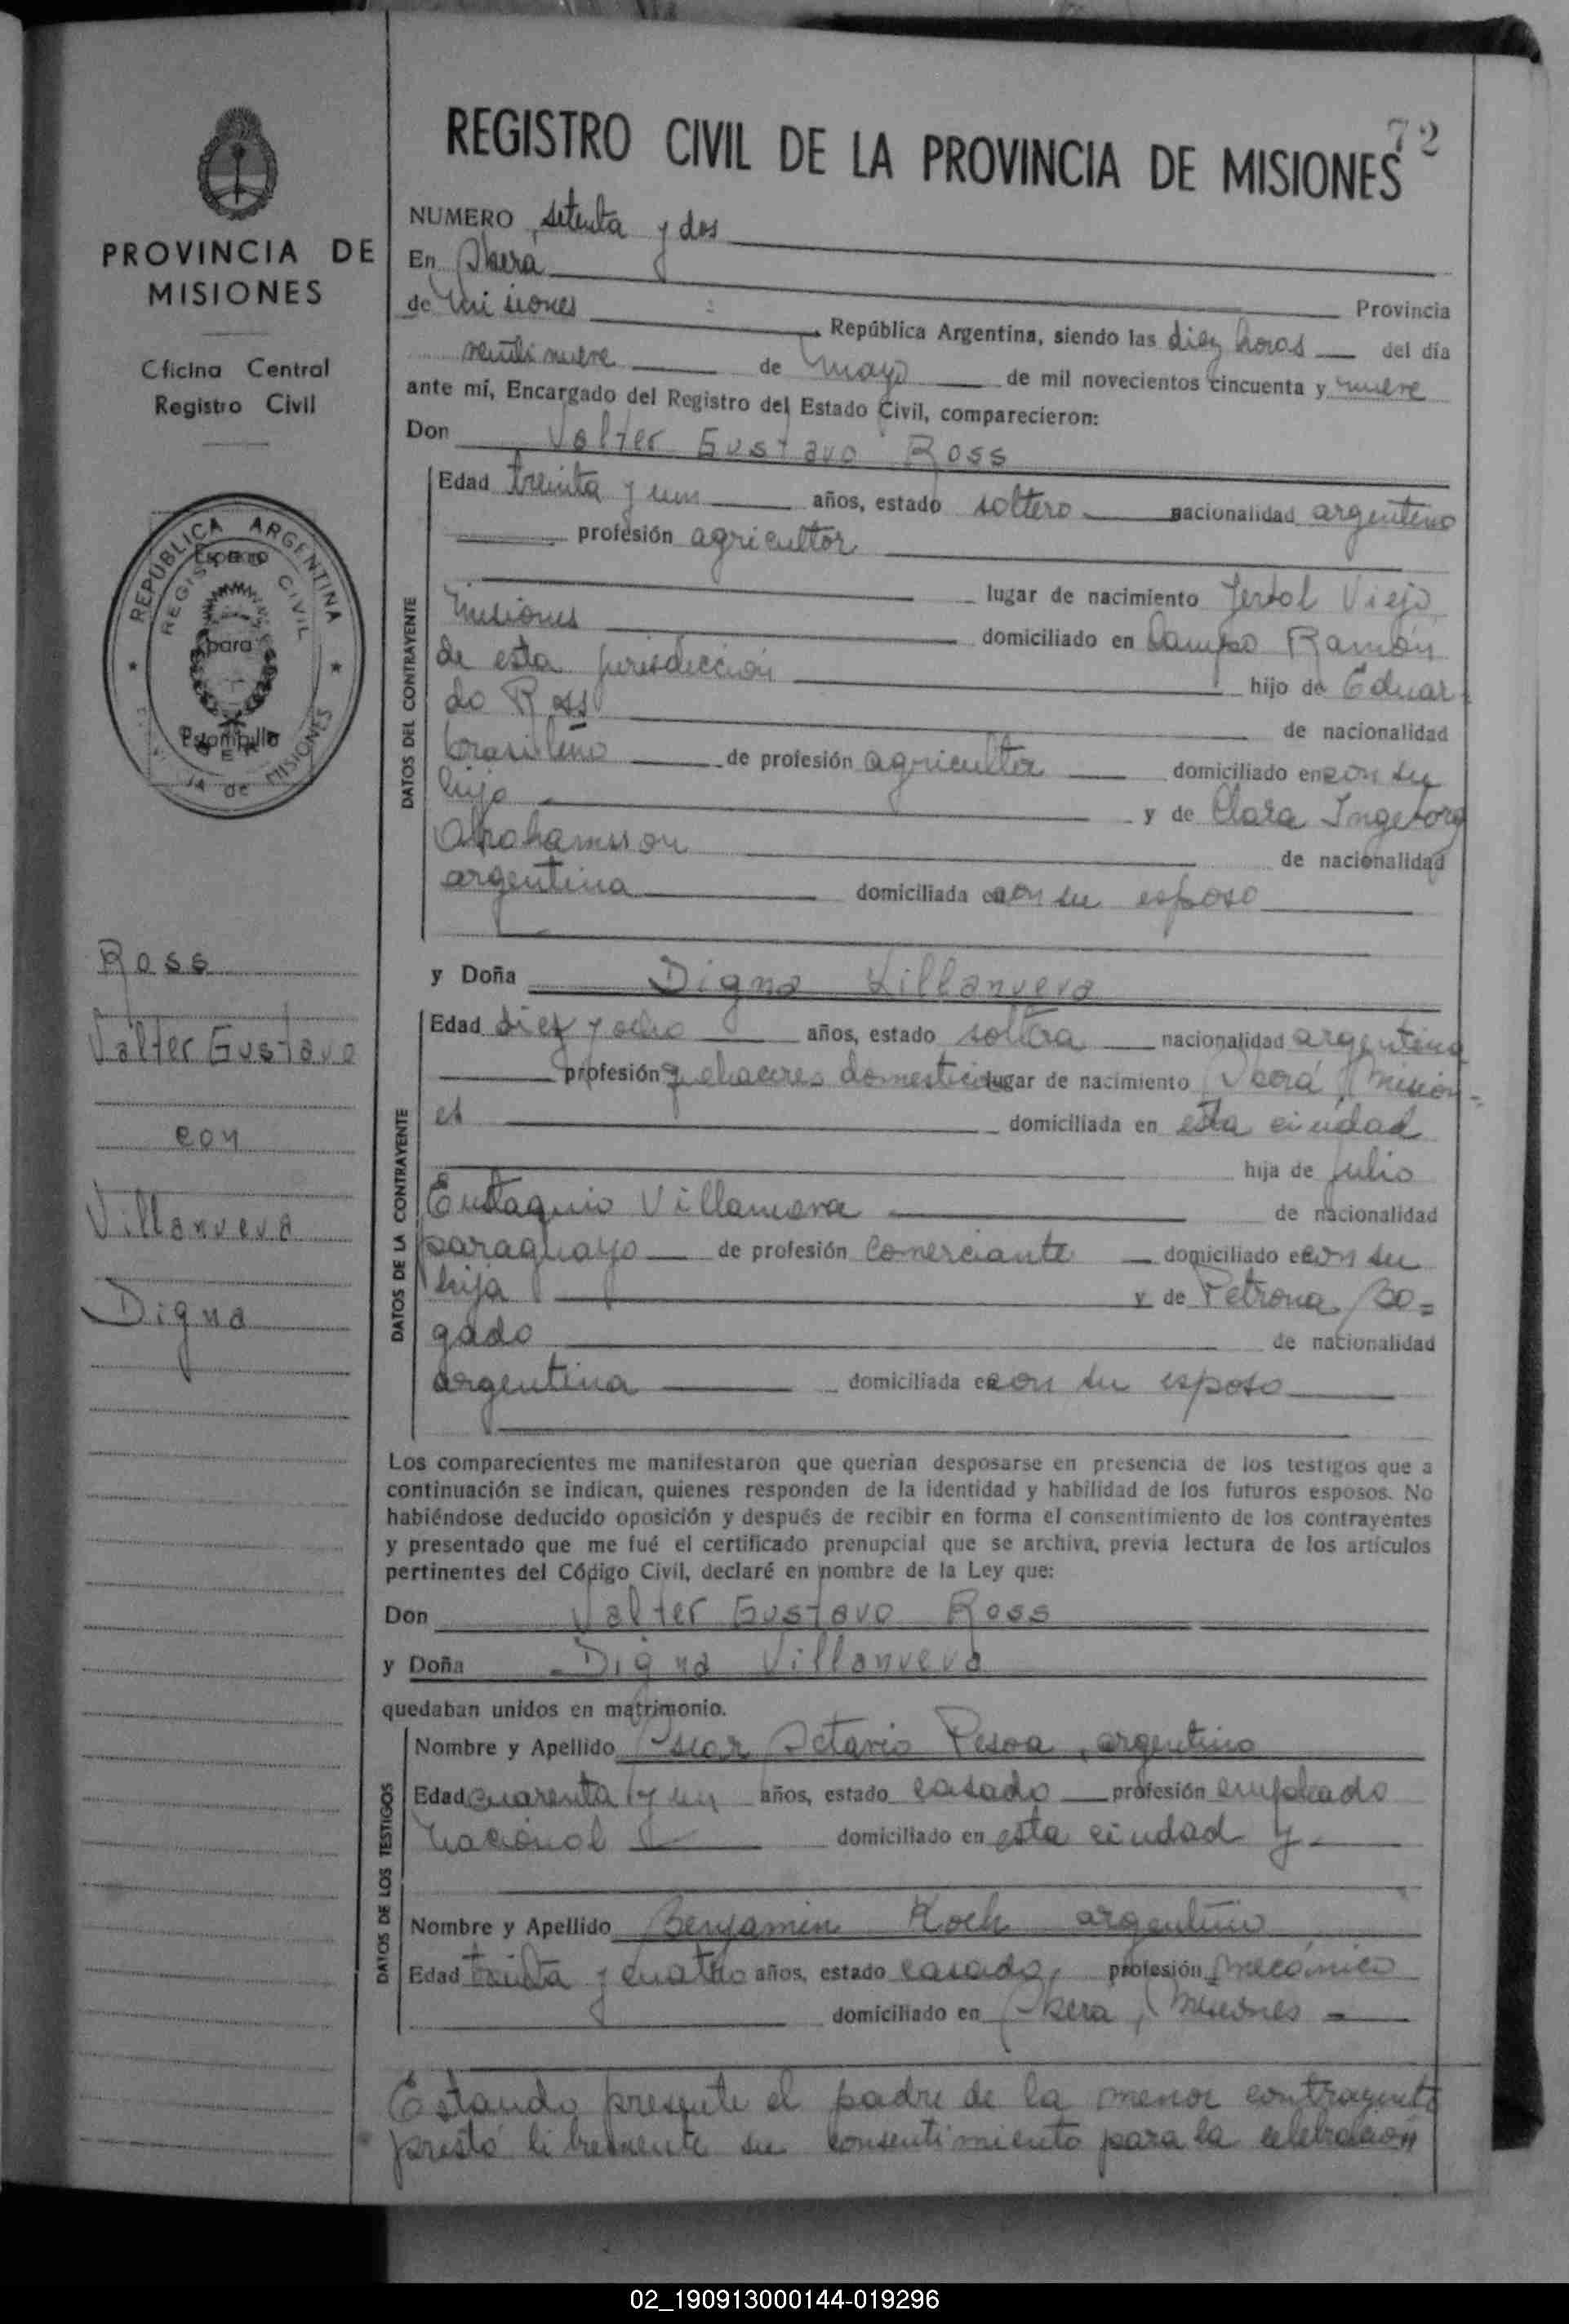 72
REGISTRO CIVIL DE LA PROVINCIA DE MISIONES
PROVINCIA DE
MISIONES
Oficina Central
Registro Civil
REPÚBLICA ARGENTINA
REGISTRO CIVIL
Espacio
para
Estampilla
de MISIONES
Ross
Valter Gustavo
con
Villanueva
Digna
NUMERO setenta y dos
En Oberá
Provincia
de Misiones República Argentina, siendo las diez horas del día
veintinueve de mayo de mil novecientos cincuenta y nueve
ante mí, Encargado del Registro del Estado Civil, comparecieron:
Don Valter Gustavo Ross
DATOS DEL CONTRAYENTE
Edad treinta y un años, estado soltero nacionalidad argentino
profesión agricultor
lugar de nacimiento Yerbal Viejo
Misiones domiciliado en Campo Ramón
de esta jurisdicción hijo de Eduar-
do Ross de nacionalidad
brasileño de profesión agricultor domiciliado en con su
hijo y de Clara Ingeborg
Abrahamsson de nacionalidad
argentina domiciliada en con su esposo
y Doña Digna Villanueva
DATOS DE LA CONTRAYENTE
Edad diez y ocho años, estado soltera nacionalidad argentina
profesión quehaceres domesticos lugar de nacimiento Oberá, Mision-
es domiciliada en esta ciudad
hija de Julio
Eustaquio Villanueva de nacionalidad
paraguayo de profesión comerciante domiciliado en con su
hija y de Petrona Bo=
gado de nacionalidad
argentina domiciliada en con su esposo
Los comparecientes me manifestaron que querían desposarse en presencia de los testigos que a
continuación se indican, quienes responden de la identidad y habilidad de los futuros esposos. No
habiéndose deducido oposición y después de recibir en forma el consentimiento de los contrayentes
y presentado que me fué el certificado prenupcial que se archiva, previa lectura de los artículos
pertinentes del Código Civil, declaré en nombre de la Ley que:
Don Valter Gustavo Ross
y Doña Digna Villanueva
quedaban unidos en matrimonio.
DATOS DE LOS TESTIGOS
Nombre y Apellido Oscar Octavio Pesoa, argentino
Edad cuarenta y un años, estado casado profesión empleado
nacional domiciliado en esta ciudad y
Nombre y Apellido Benjamin Koch argentino
Edad treinta y cuatro años, estado casado, profesión mecánico
domiciliado en Oberá, Misiones
Estando presente el padre de la menor contrayente
prestó libremente su consentimiento para la celebración
02_190913000144-019296